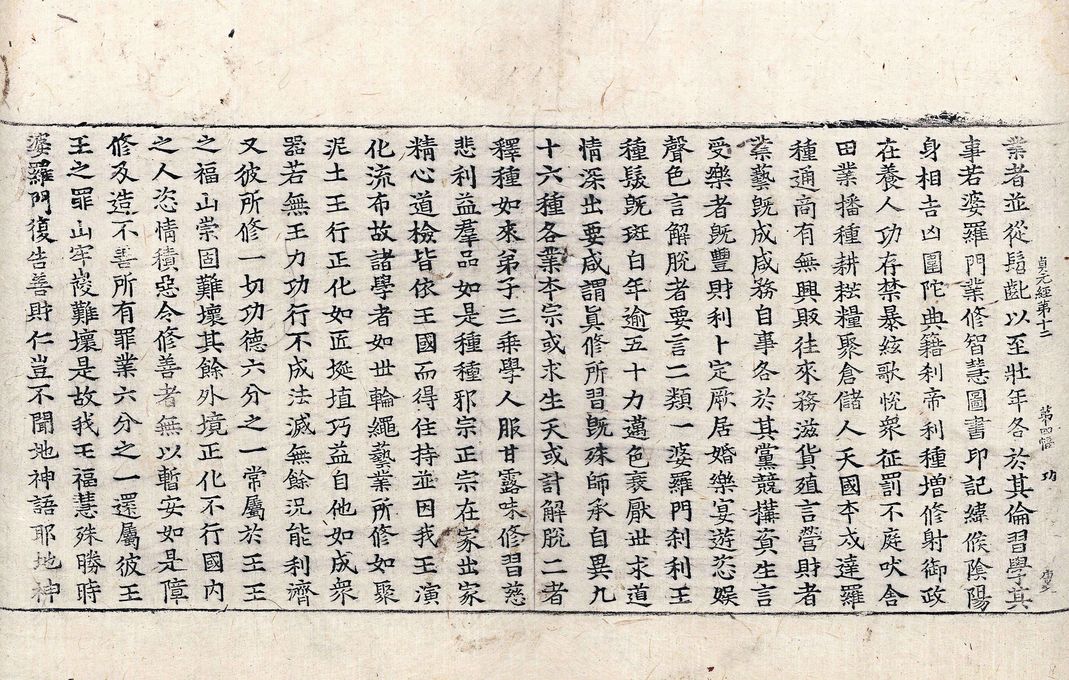 業者並從髫齔以至壯年各於其倫習學其
事若婆羅門業修智慧圖書印記緯候陰陽
身相吉凶圍陀典籍刹帝利種增修射御政
在養人功存禁暴絃歌悅衆征罰不庭吠舍
田業播種耕耘糧聚倉儲人天國本戍達羅
種通商有無興販往來務滋貨殖言營財者
業藝旣成咸務自事各於其黨競摭資生言
受樂者旣豐財利卜定厥居婚樂宴遊恣娛
聲色言解脫者要言二類一婆羅門刹利王
種髮旣斑白年逾五十力邁色衰厭世求道
情深出要咸謂眞修所習旣殊師承自異九
十六種各業本宗或求生天或計解脫二者
釋種如來弟子三乘學人服甘露味修習慈
悲利益羣品如是種種邪宗正宗在家出家
精心道檢皆依王國而得住持並因我王演
化流布故諸學者如世輪繩藝業所修如聚
泥土王王行正化如匠埏埴巧益自他如成衆
器若無王力功行不成法滅無餘況能利濟
又彼所修一切功德六分之一常屬於王王
之福山崇固難壞其餘外境正化不行國內
之人恣情積惡令修善者無以暫安如是障
修及造不善所有罪業六分之一還屬彼王
王之罪山牢崚難壞是故我王福慧殊勝時
婆羅門復告善財仁豈不聞地神語耶地神
貞元經第十二 第四幅 功